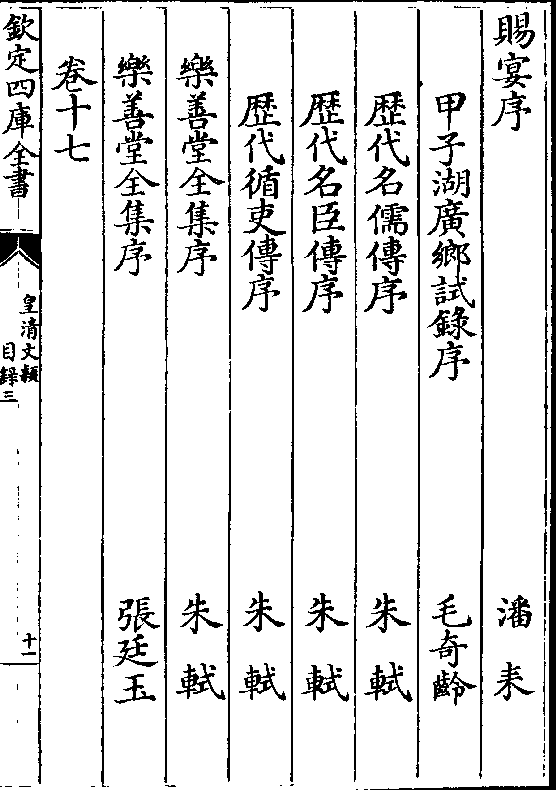 賜宴序 潘耒
甲子湖廣鄉試錄序 毛奇齡
歴代名儒傳序 朱軾
歴代名臣傳序 朱軾
歴代循吏傳序 朱軾
樂善堂全集序 朱軾
樂善堂全集序 張廷玉
卷十七
欽定四庫全書
皇清文穎
目録三
十一